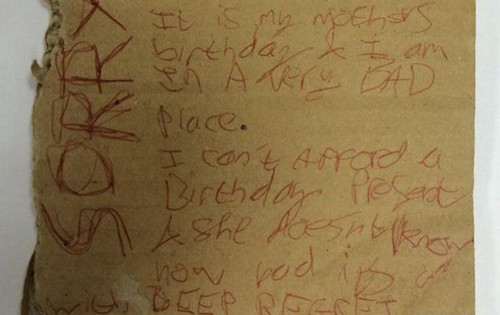 SORRY
It is my mothers
birthday & I am
in A very BAD
place.
I can't AFFord a
Birthday Present
& she doesn't know
how bad it's
with DEEP REGRET